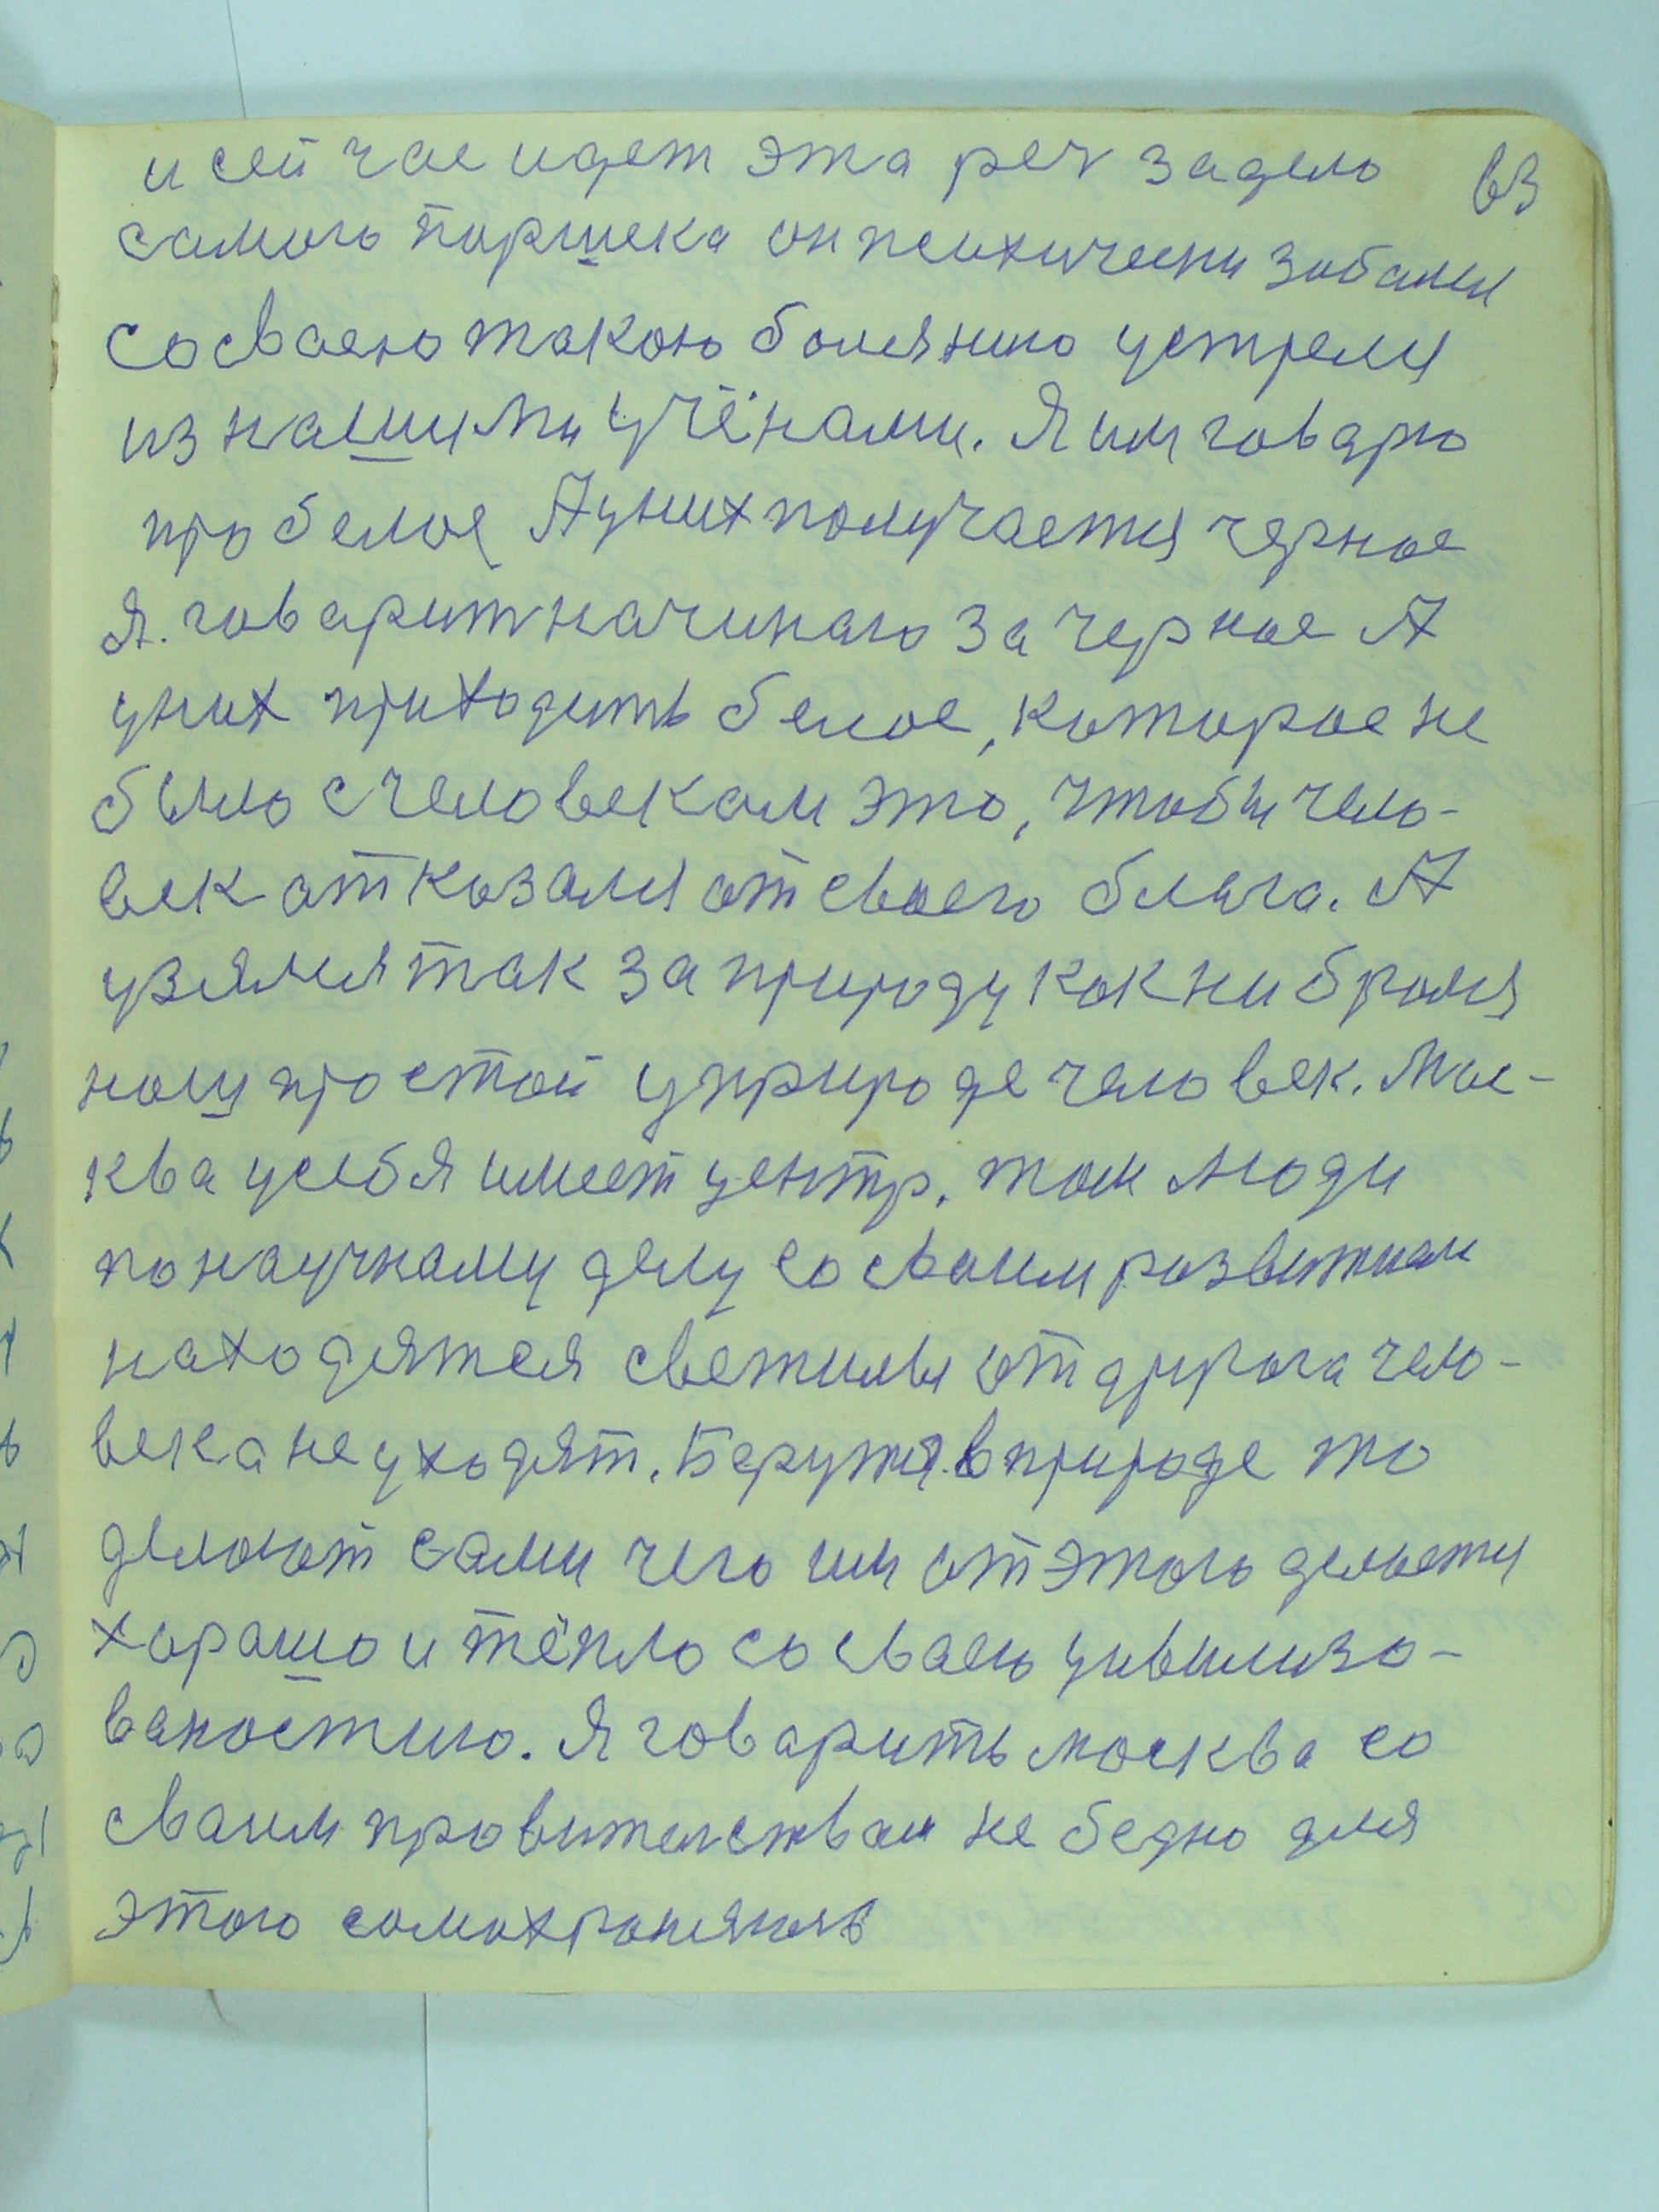 и сей час идет эта реч за дело 63
самого паршека он психически забалел
со сваею такою болянию устреля
из нашими учёнами. Я им говарю
про белое А у них получается черное
Я. говарит начинаю за черное А
у них приходить белое, которое не
было с человекам это, чтобы чело-
век отказался от своего блага. А
узялся так за природу как ни брался
нош простой у природе человек. Мос-
ква у себя имеет центр. там люди
по научнаму делу со сваим развитиам
находятся светилы от друрога чело-
века не уходят. Берутся в природе то
делают сами чего им от этого делается
харашо и тёпло со сваею цивилизо-
ваностию. Я говарить москва со
сваим правительствам не бедно для
этого